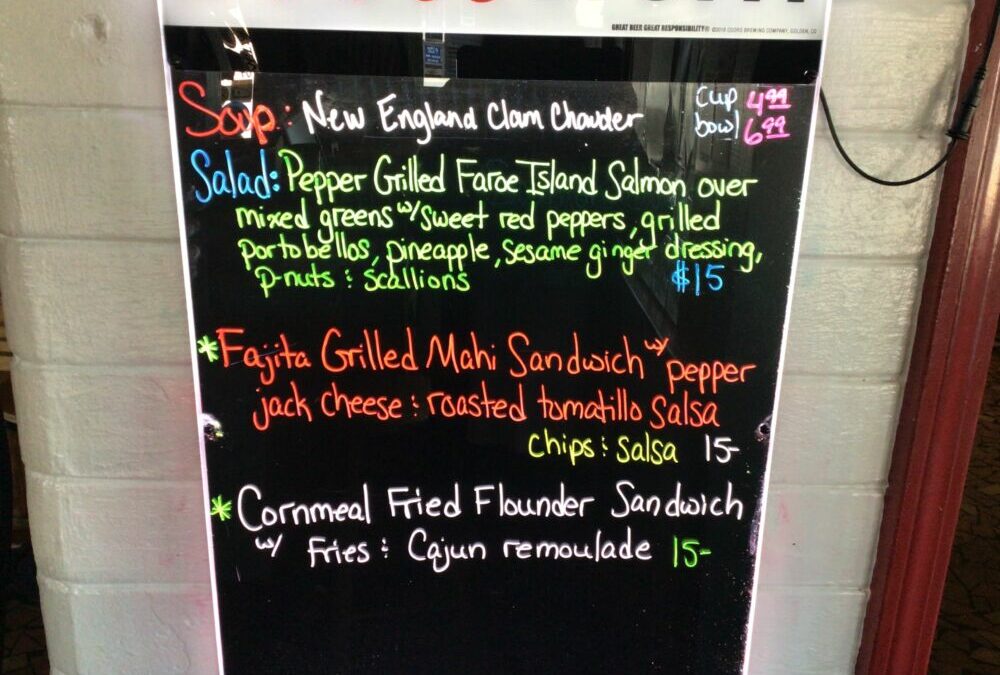 GREAT BEER GREAT RESPONSIBILITY® ©2019 COORS BREWING COMPANY, GOLDEN, CO
Soup: New England Clam Chowder cup 4.99
bowl 6.99
Salad: Pepper Grilled Faroe Island Salmon over
mixed greens w/ sweet red peppers, grilled
portobellos, pineapple, sesame ginger dressing,
p-nuts & scallions $15
* Fajita Grilled Mahi Sandwich w/ pepper
jack cheese & roasted tomatillo Salsa
chips & salsa 15-
* Cornmeal Fried Flounder Sandwich
w/ fries & Cajun remoulade 15-